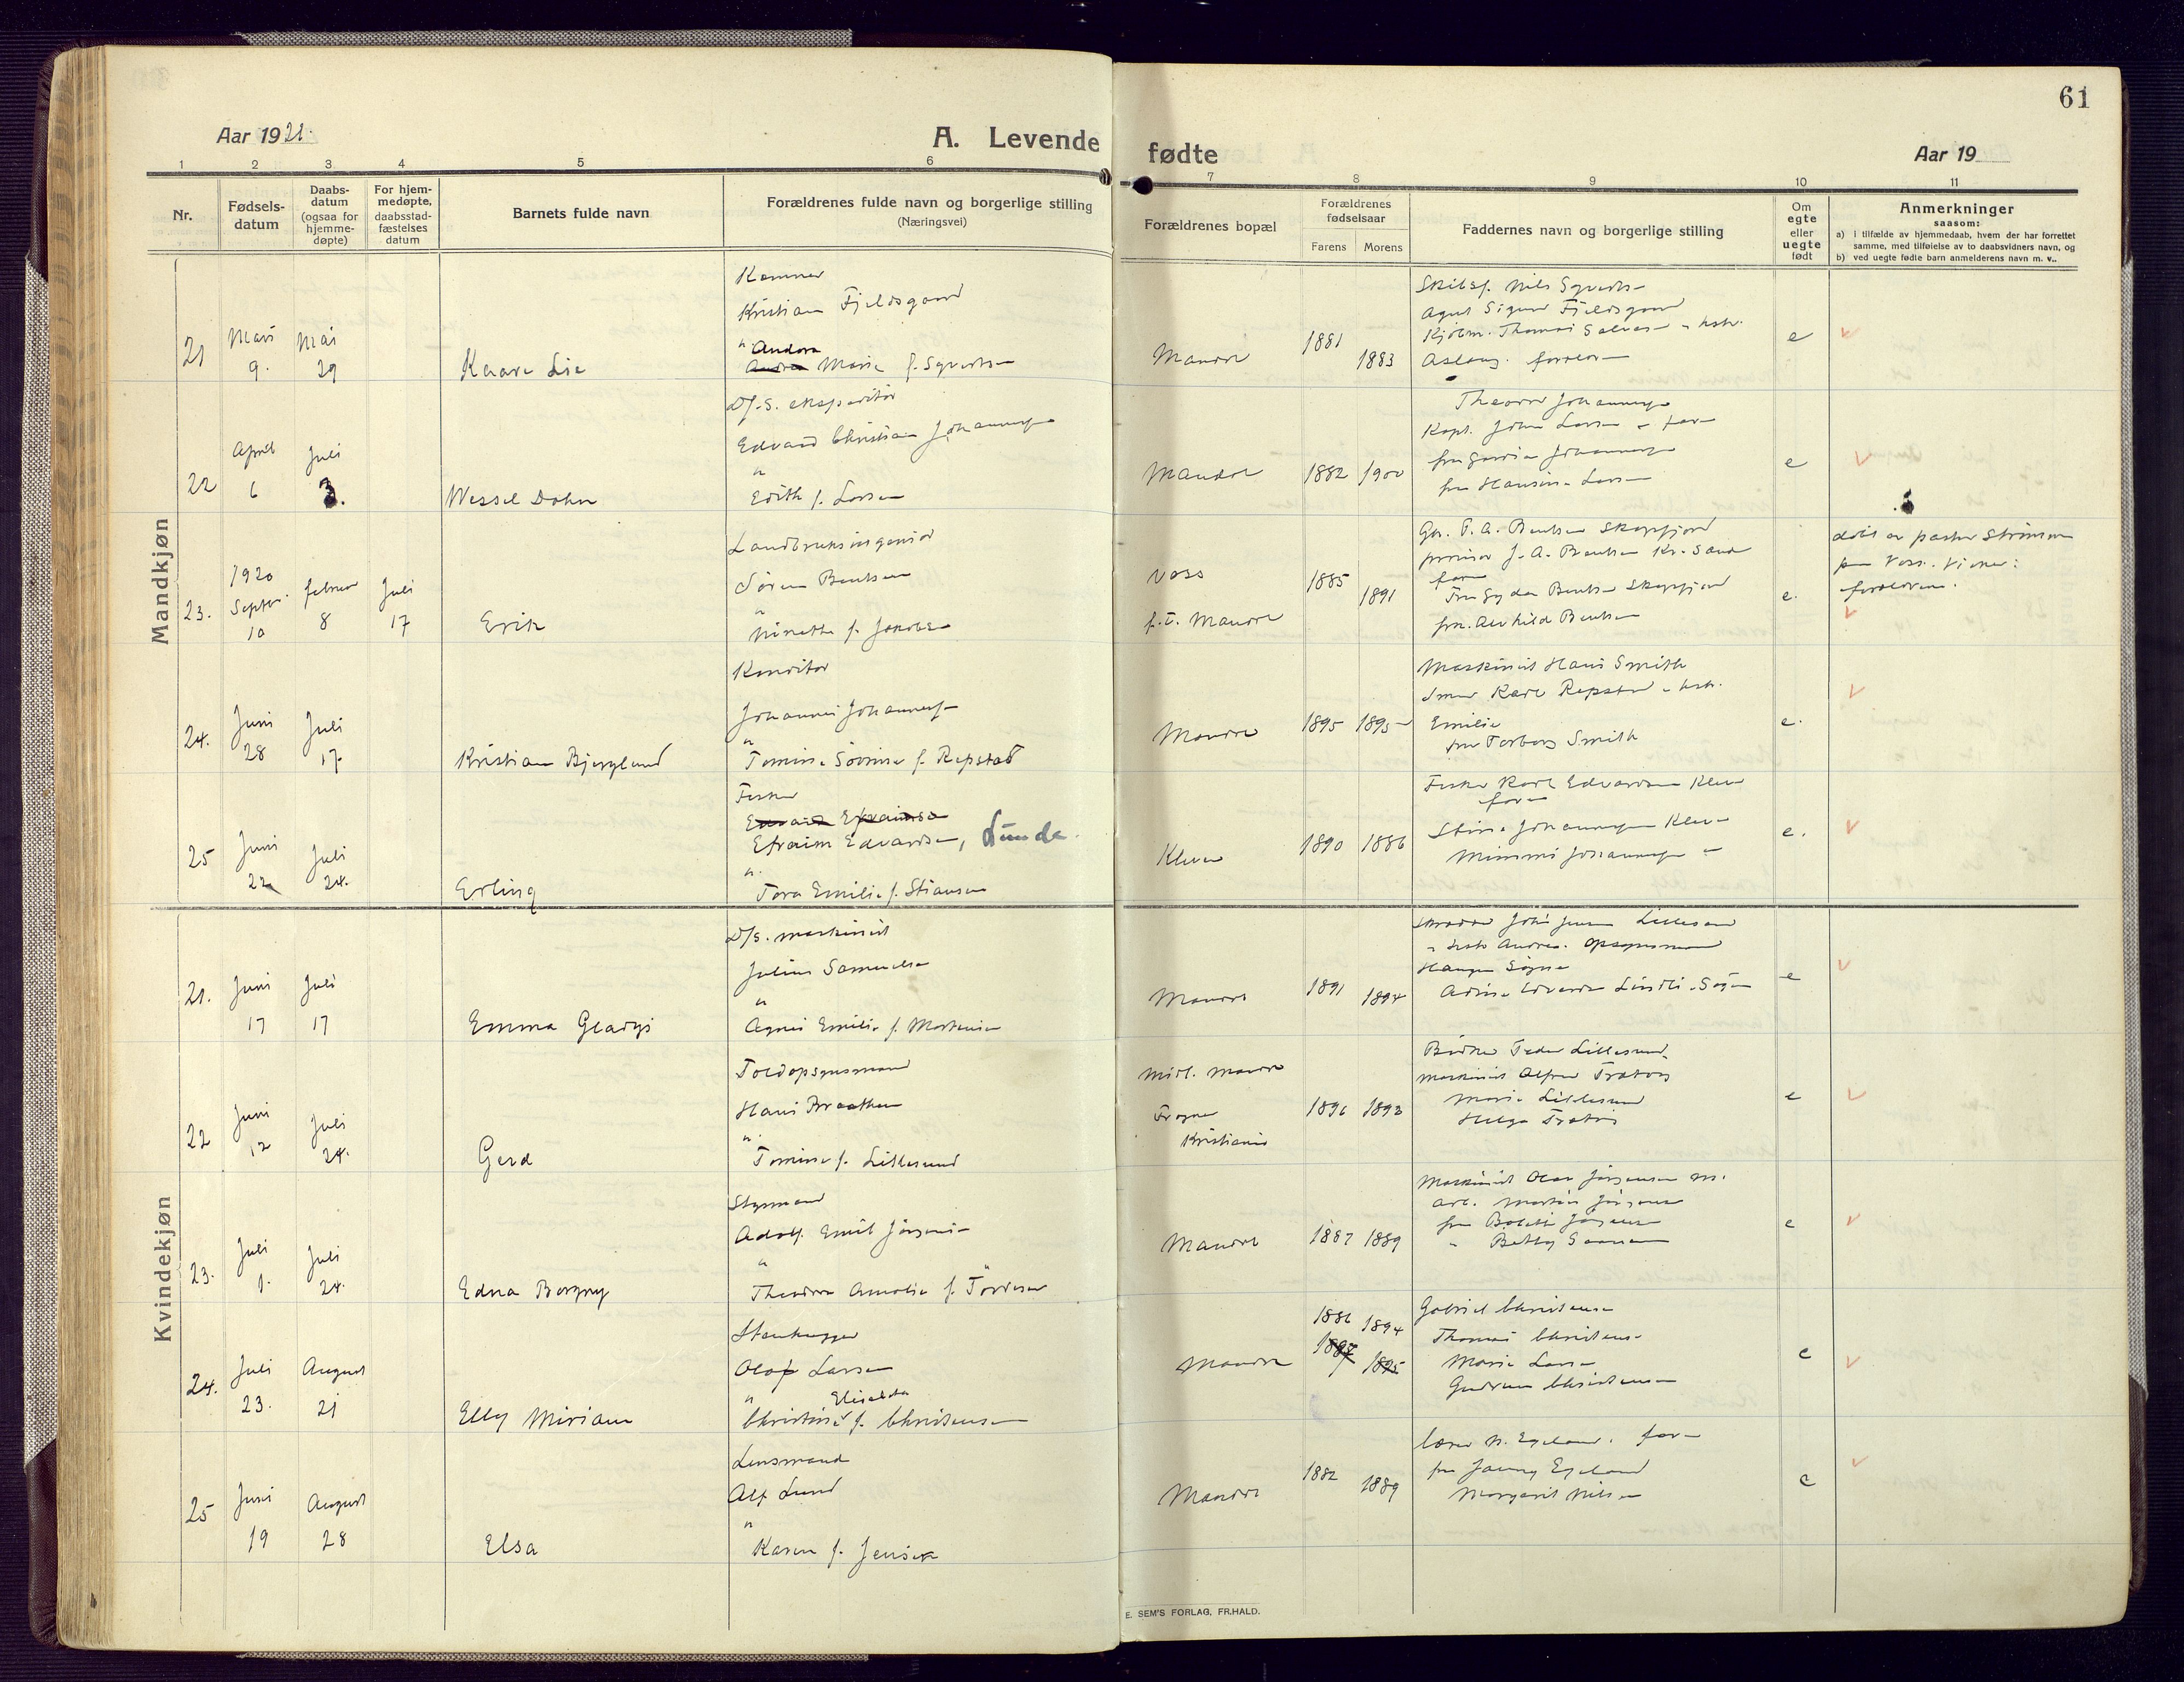 61
Aar 1921.
A. Levende
fødte
Aar 19
1 2 3 4 5 6 7 8 9 10 11
Nr.
Fødsels-
datum
Daabs-
datum
(ogsaa for
hjemme-
døpte)
For hjem-
medøpte,
daabsstad-
fæstelses
datum
Barnets fulde navn
Forældrenes fulde navn og borgerlige stilling
(Næringsvei)
Forældrenes bopæl
Forældrenes
fødselsaar
Farens
Morens
Faddernes navn og borgerlige stilling
Om
egte
eller
uegte
født
Anmerkninger
saasom:
a) i tilfælde av hjemmedaab, hvem der har forrettet
samme, med tilføielse av to daabsvidners navn, og
b) ved uegte fødte barn anmelderens navn m. v..
Mandkjøn
21
Mars
9.
Mai
29
Kaare Lie
Kristian Fjeldsgaard
"
Andora
Marie f. Syvertsen
Mandal
1881
1883
Skibsf. Nils Syvertsen
Agent Sigurd Fjeldsgaard
Aslaug
e
22
April
6
Juli
3.
Wessel Dohn
D/S. ekspeditör
Edvard Christian Johannesen
"
Edith f. Larsen
Mandal
1882 1900
Theodor Johannesen
Kapt. John Larsen
fru Hansine Larsen
e
23.
1920
Septbr.
10
februar
8
Juli
17
Erik
Landbruksingeniör
Sören Bentsen
"
Ninette f. Jakobsen
Voss
p.t. Mandal
1885
1891
P. A. Bentsen
J. A. Bentsen Kr.sand
Bentsen
frk. Alvhild Bentsen
e.
döbt av pastor Strömme
paa Voss. Vidner:
forældrene.
24.
Juni
28
Juli
17.
Kristian Bjerglund
Konditor
Johannes Johannesen
"
Tomine Sövrine f. Repstad
Mandal
1895 1895
Maskinist Hans Smith
Karl Repstad
Emilie
fru Torborg Smith
e.
25
Juni
22
Juli
24.
Erling
Fisker
Edvard Efraimsen
Efraim Edvardsen, Lunde.
"
Tora Emilie f. Stiansen
Kleven
1890 1886
Fisker Karl Edvardsen Kleven
Stine Johannesen Kleven
Mimmi Johannesen "
e.
Kvindekjøn
21.
Juni
17
Juli
17
Emma Gladys
D/S. maskinist
Julius Samuelsen
"
Agnes Emilie f. Mortensen
Mandal
1891 1894
e
22
Juni
12
Juli
24.
Gerd
Toldopsynsmand
Hans Braathen
"
Tomine f. Lillesund
Midl. Mandal
Frogner
Kristiania
1896 1893
Peder Lillesund
maskinist Alfred
Marie Lillesund
Helga
e
23.
Juli
1.
Juli
24.
Edna Borgny
Styrmand
Adolf Emil Jörgensen
"
Theodora Amalie f. Torkelsen
Mandal
1887 1889
Maskinist Olav Jörgensen
arb. Martin Jörgensen
fru Bolette Jörgensen
" Betty
e
24.
Juli
23.
August
21
Elly Miriam
Stenhugger
Olaf Larsen
"
Elisabeth
Christine f. Christensen
Mandal
1886 1894
1887 1895
Gabriel Christensen
Thomas Christensen
Marie Larsen
Gudrun Christensen
e
25
Juni
19
August
28
Elsa
Lensmand
Alf Lund
"
Karen f. Jensen
Mandal
1882 1889
lærer N. Egeland.
fru Jenny Egeland
Margarit Nilsen
e
E. SEM'S FORLAG, FR.HALD.